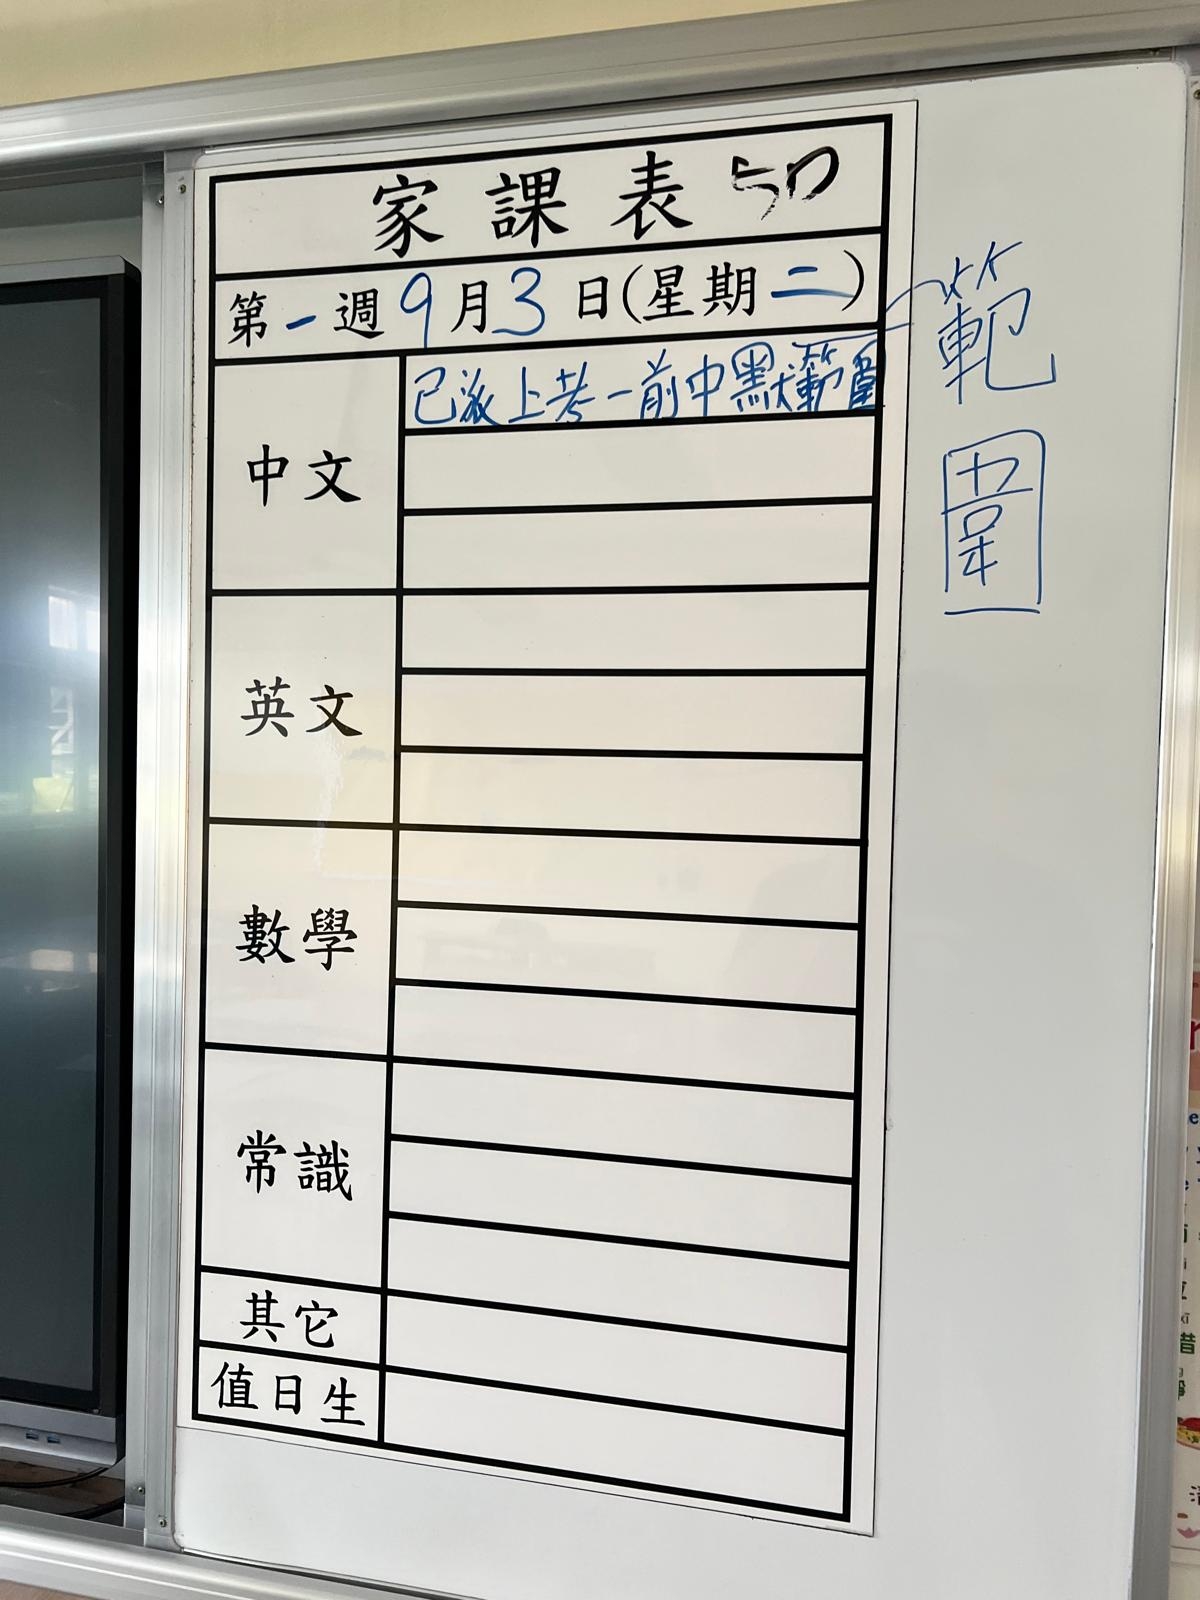 家課表 5D
第一週9月3日(星期二)
中文
已派上考一前中默範圍
範
圍
英文
數學
常識
其它
值日生